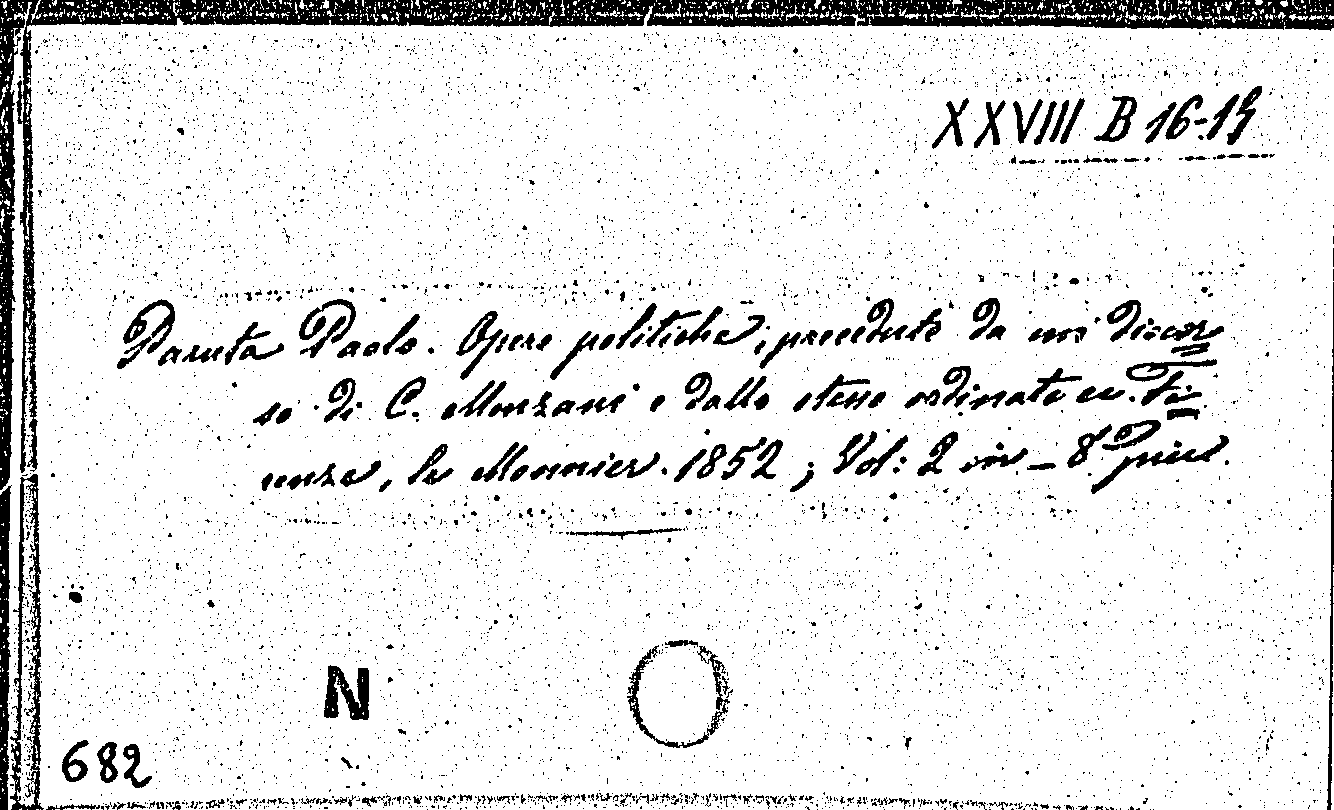 XXVIII B 16-
Paruta Paolo. Opere politiche, precedute da un discor=
so di C. Monzani e dallo stesso ordinate ec. Fi=
renze, le Monnier. 1852; Vol: 2 in-8° picc.
N
682